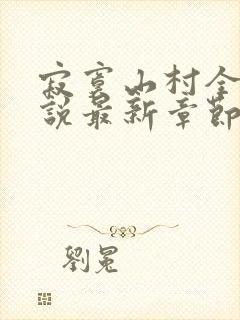 寂寞山村全
說最新章節
劉冕